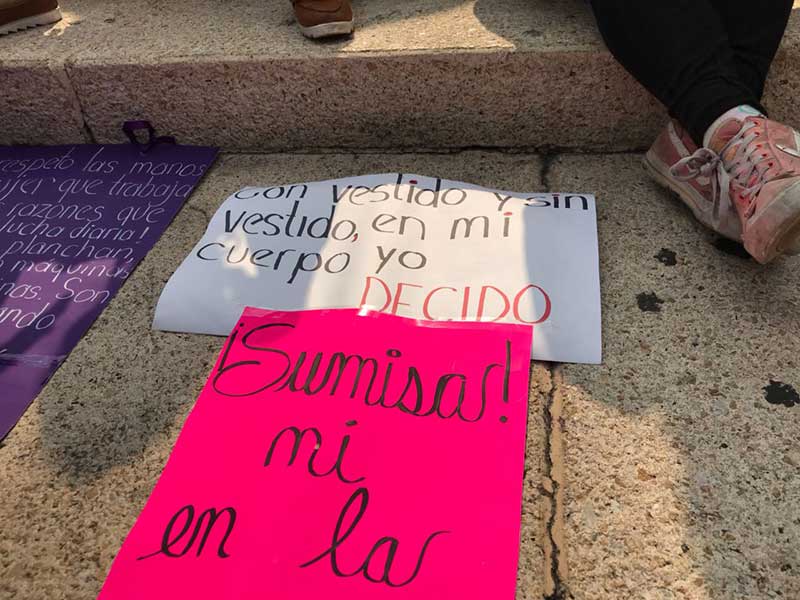 respeto las manos
ujer que trabaja
razones que
lucha diaria!
planchan,
máquinas
nas. Son
ando
Con vestido y sin
vestido, en mi
cuerpo yo
DECIDO
¡Sumisas!
ni
en la